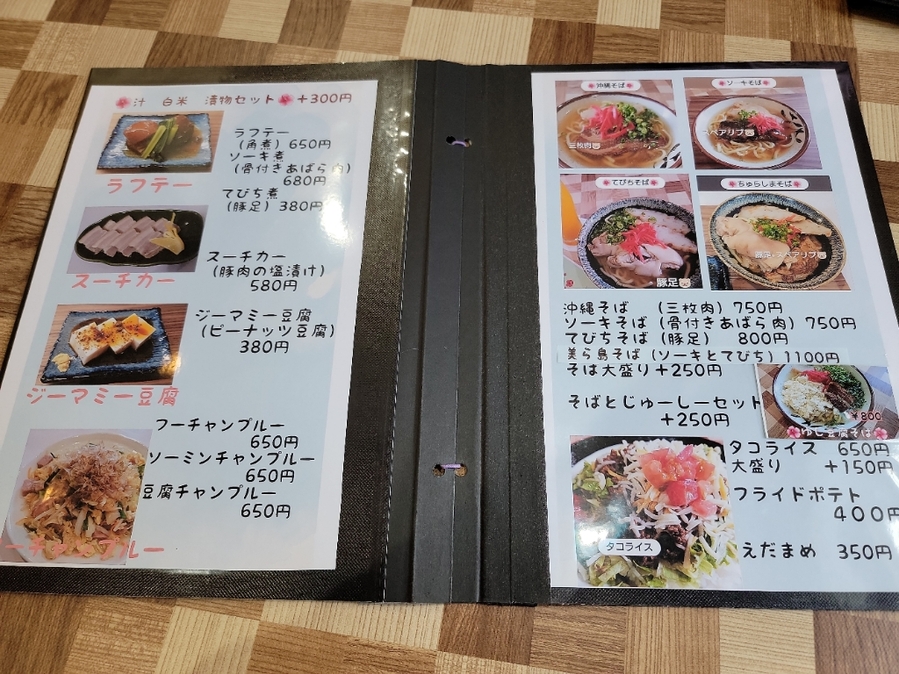 汁 白米 漬物セット +300円
ラフテー
(角煮) 650円
ソーキ煮
(骨付きあばら肉)
680円
てびち煮
(豚足) 380円
ラフテー
スーチカー
(豚肉の塩漬け)
580円
スーチカー
ジーマミー豆腐
(ピーナッツ豆腐)
380円
ジーマミー豆腐
フーチャンプルー
650円
ソーミンチャンプルー
650円
豆腐チャンプルー
650円
ーチャンプルー
沖縄そば
三枚肉
ソーキそば
スペアリブ
てびちそば
豚足
ちゅらしまそば
豚足・スペアリブ
沖縄そば (三枚肉) 750円
ソーキそば (骨付きあばら肉) 750円
てびちそば (豚足) 800円
美ら島そば (ソーキとてびち) 1100円
そば大盛り+250円
そばとじゅーしーセット
+250円
¥800
ゆし豆腐そば
タコライス 650円
大盛り +150円
フライドポテト
400円
えだまめ 350円
タコライス